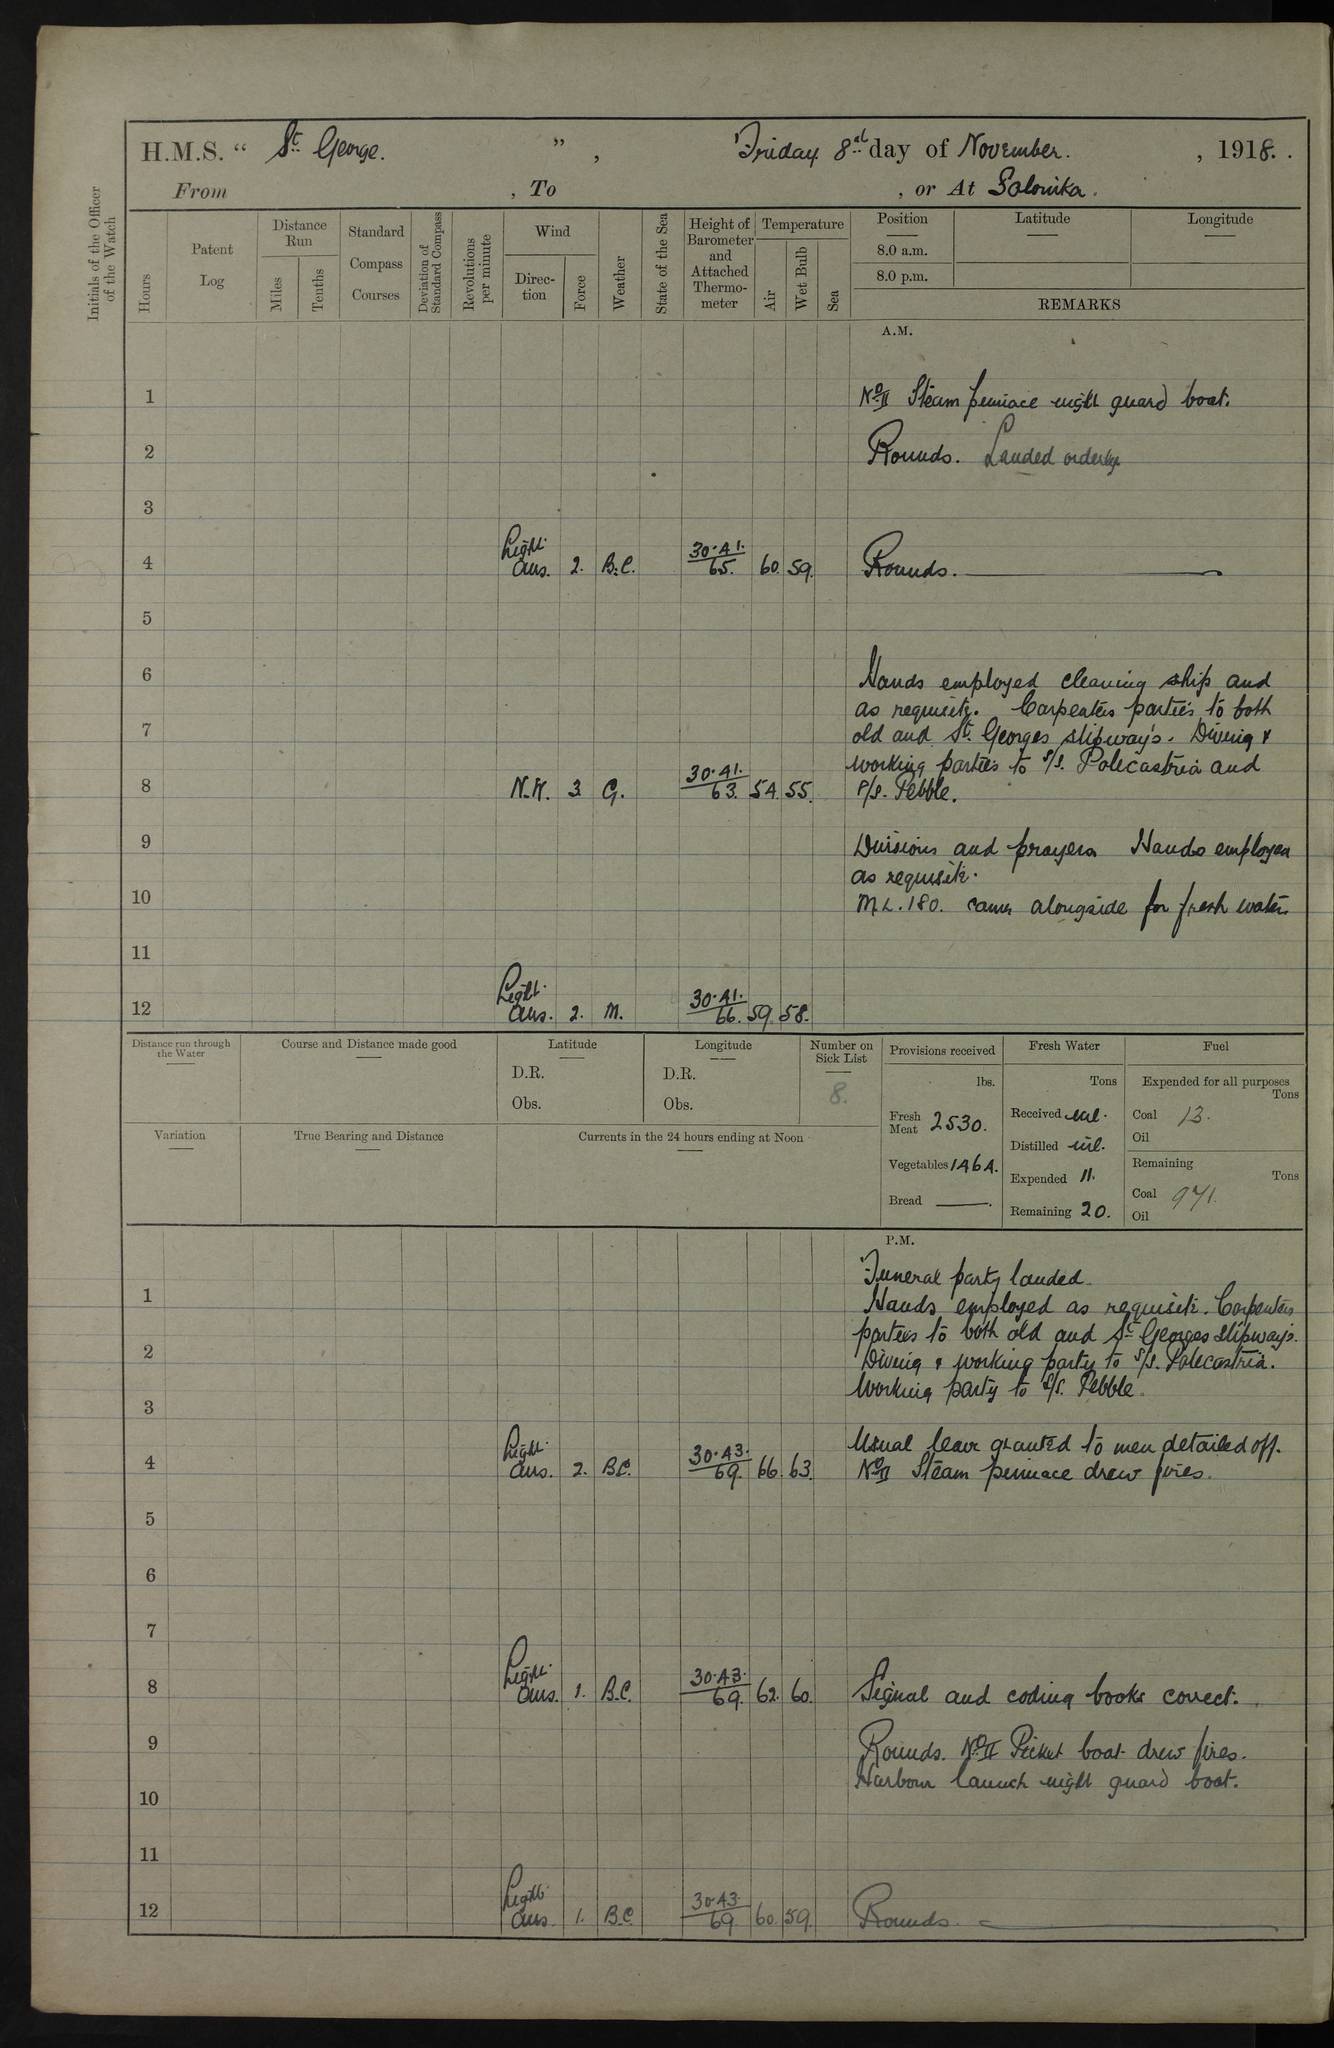 H.M.S. “ St. George. ” , Friday 8th day of November. , 1918. .
From , To , or At Salonika.
Initials of the Officer of the Watch
Hours
Patent Log
Distance Run
Miles
Tenths
Standard Compass Courses
Deviation of Standard Compass
Revolutions per minute
Wind
Direc-tion
Force
Weather
State of the Sea
Height of Barometer and Attached Thermo-meter
Temperature
Air
Wet Bulb
Sea
Position Latitude Longitude
8.0 a.m.
8.0 p.m.
REMARKS
A.M.
1 No II Steam pinnace night guard boat.
2 Rounds. Landed orderly
3
4 Light airs. 2. B.C. 30.41. 65. 60. 59. Rounds.
5
6 Hands employed cleaning ship and
as requisite. Carpenters parties to both
7 old and St. Georges slipway's. Diving &
working parties to S/S. Polecastria and
8 N.W. 3 G. 30.41. 63. 54. 55. P/S. Pebble.
9 Divisions and prayers Hands employed
as requisite.
10 M.L. 180. came alongside for fresh water
11
12 Light airs. 2. M. 30.41. 66. 59. 58.
Distance run through the Water
Course and Distance made good
Latitude
D.R.
Obs.
Longitude
D.R.
Obs.
Number on Sick List
8.
Variation
True Bearing and Distance
Currents in the 24 hours ending at Noon
Provisions received
lbs.
Fresh Meat 2530.
Vegetables 1464.
Bread
Fresh Water
Tons
Received nil.
Distilled nil.
Expended 11.
Remaining 20.
Fuel
Expended for all purposes
Tons
Coal 13.
Oil
Remaining
Tons
Coal 971.
Oil
P.M.
Funeral party landed.
1 Hands employed as requisite. Carpenters
parties to both old and St Georges slipway's.
2 Diving & working party to S/S. Polecastria.
Working party to S/S. Pebble.
3
Usual leave granted to men detailed off.
4 Light airs. 2. B.C. 30.43. 69. 66. 63. No II Steam pinnace drew fires.
5
6
7
8 Light airs. 1. B.C. 30.43. 69. 62. 60. Signal and coding books correct.
9 Rounds. No II Picket boat drew fires.
Harbour launch night guard boat.
10
11
12 Light airs. 1. B.C. 30.43. 69. 60. 59. Rounds.